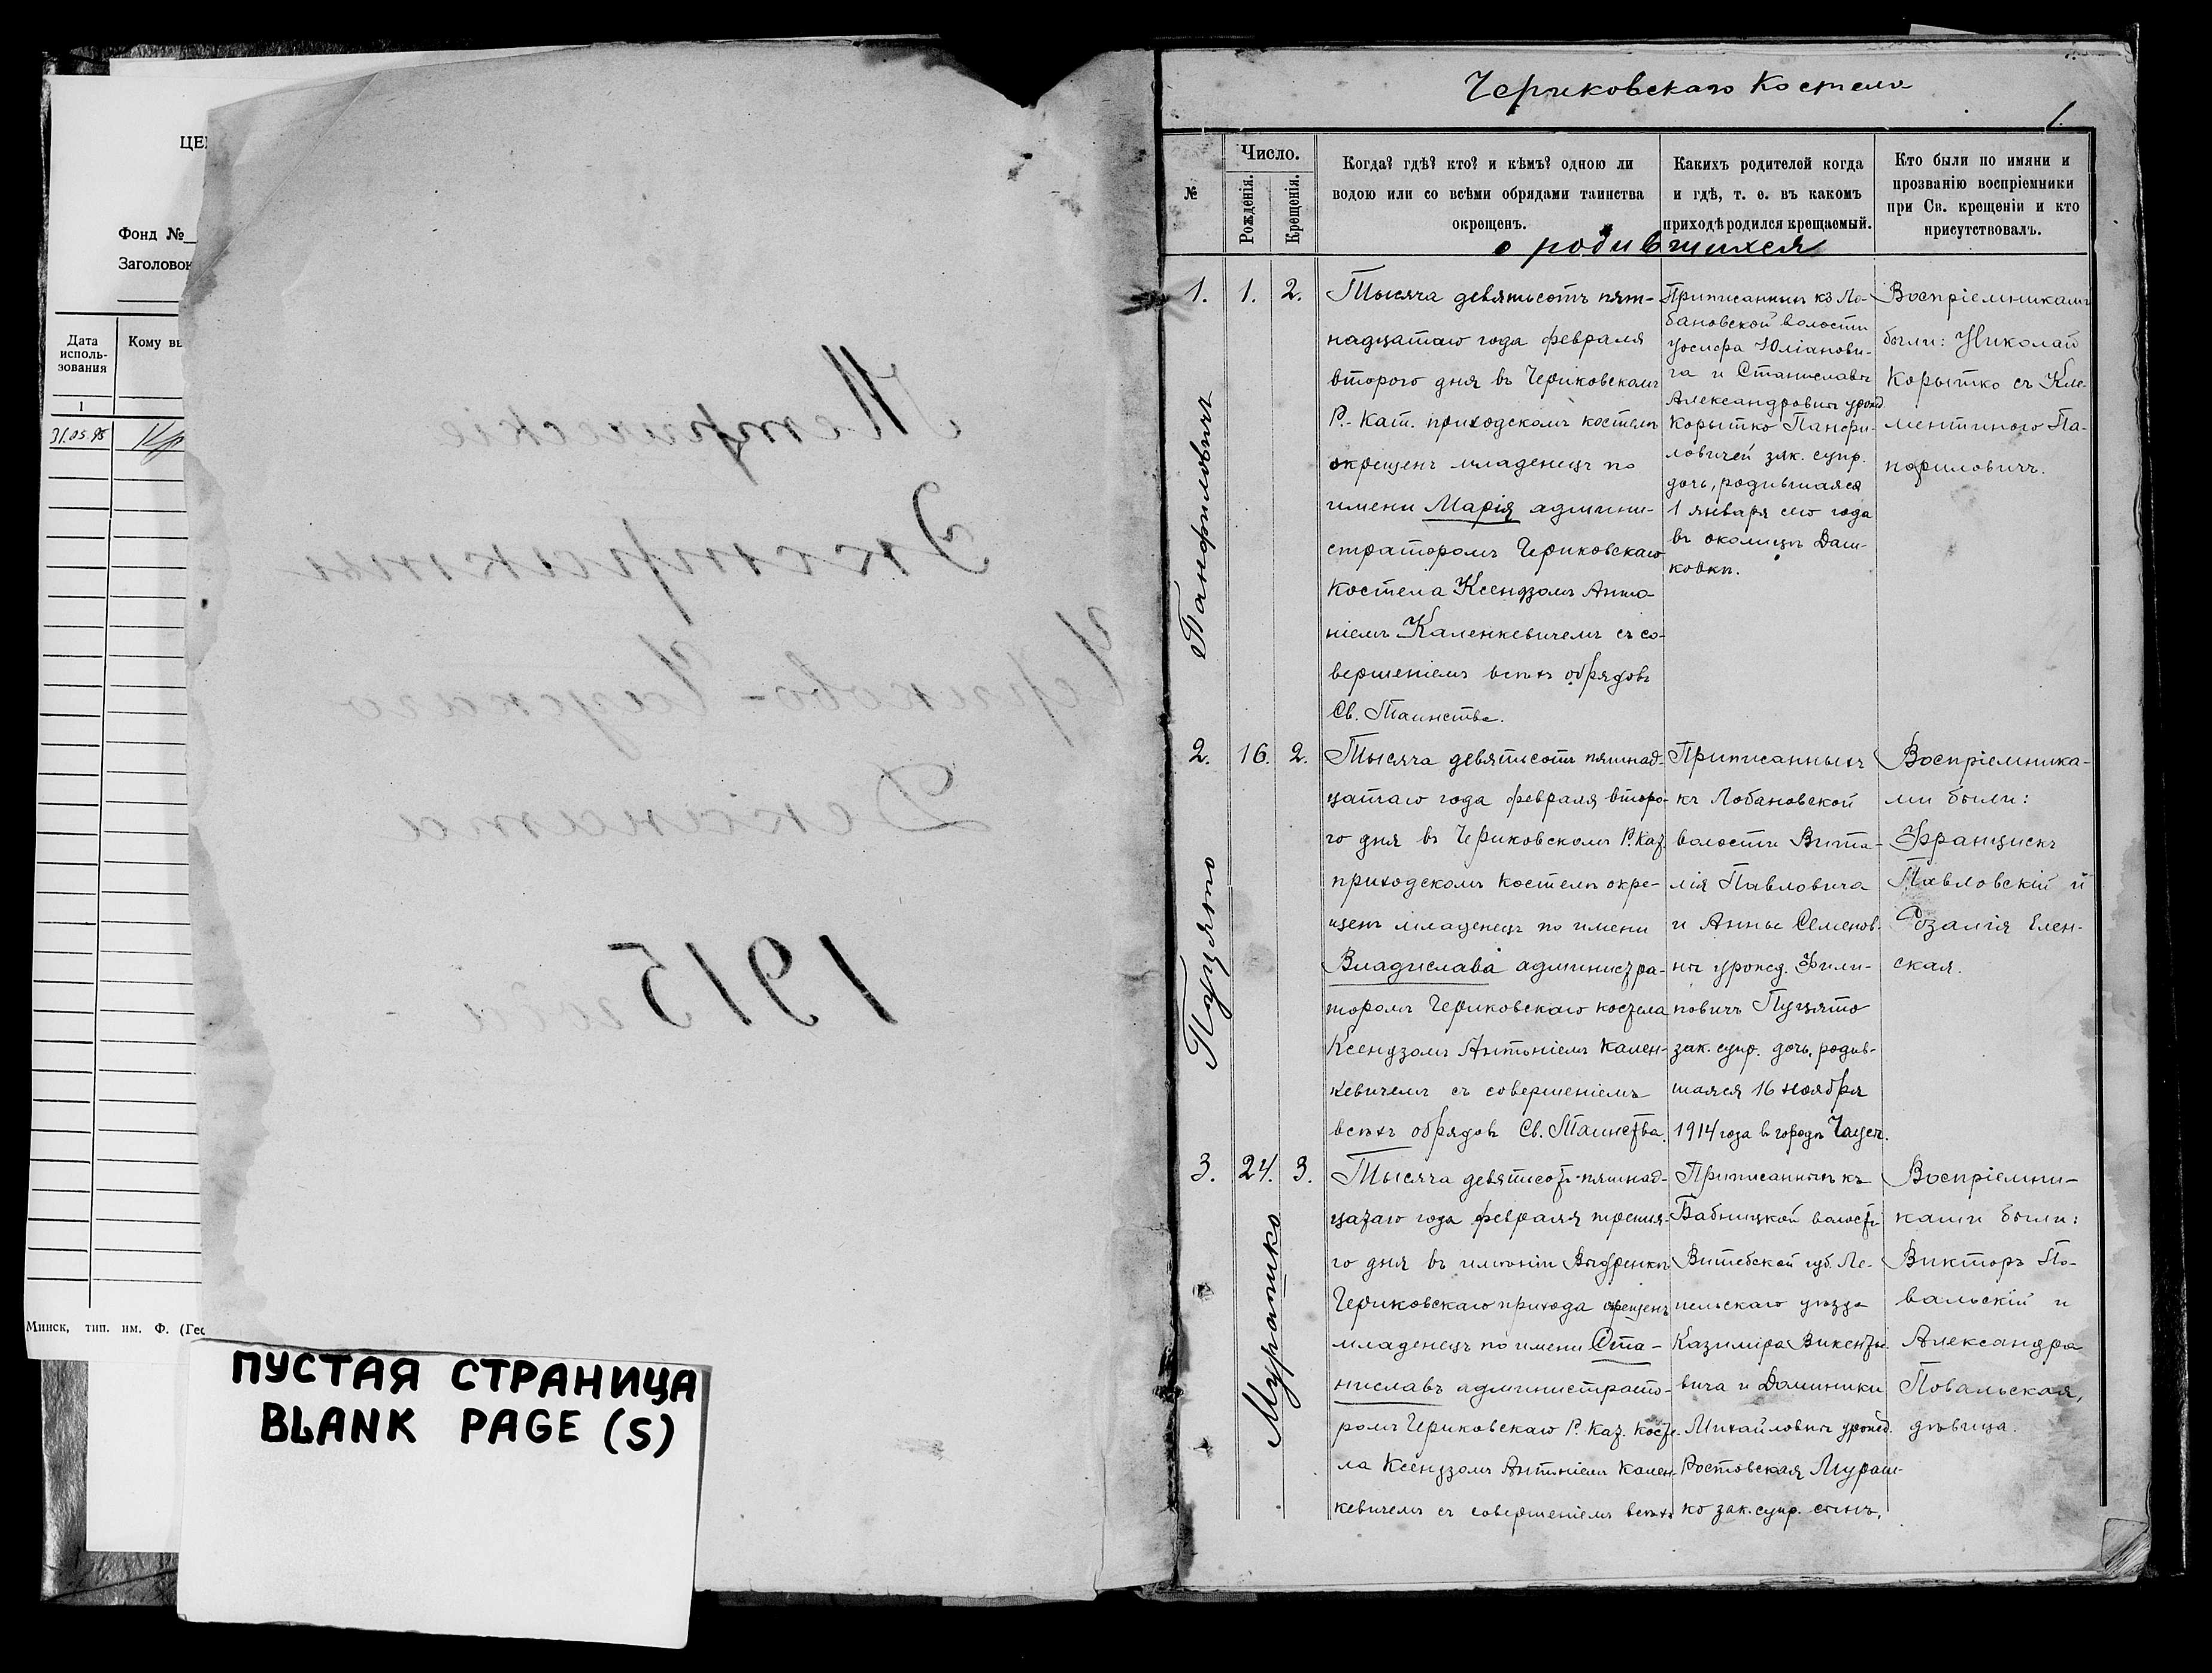 ЦЕ
Фонд №
Заголовок
Дата
исполь-
зования
Кому вы
1
31.05.95
Минск, тип. им. Ф. (Гес
Метрическіе
Экстракты
Чериково-Чаускаго
Деканата
1915 года
ПУСТАЯ СТРАНИЦА
BLANK PAGE (S)
Чериковскаго Костела
1.
№
Число.
Рожденія.
Крещенія.
Когда? гдѣ? кто? и кѣмъ? одною ли
водою или со всѣми обрядами таинства
окрещенъ.
Какихъ родителей когда
и гдѣ, т. е. въ какомъ
приходѣ родился крещаемый.
Кто были по имяни и
прозванію воспріемники
при Св. крещеніи и кто
присутствовалъ.
о родившихся
1. 1. 2.
Панфиловичъ
Тысяча девятьсотъ пят-
надцатаго года февраля
второго дня въ Чериковскомъ
Р.-Кат. приходскомъ костелѣ
окрещенъ младенецъ по
имени Марія админи-
страторомъ Чериковскаго
костела Ксендзомъ Анто-
ніемъ Каленкевичемъ съ со-
вершеніемъ всѣхъ обрядовъ
Св. Таинства.
Приписанныхъ къ Ло-
бановской волости
Іосифа Юліанови-
ча и Станиславы
Александровны урожд.
Корытко Панфи-
ловичей зак. супр.
дочь, родившаяся
1 января сего года
въ околицѣ Даш-
ковкѣ.
Воспріемниками
были: Николай
Корытко съ Кле-
ментиною Па-
нфиловичъ.
2. 16. 2.
Пуцято
Тысяча девятьсотъ пятнад-
цатаго года февраля второ-
го дня въ Чериковскомъ Р. Кат.
приходскомъ костелѣ окре-
щенъ младенецъ по имени
Владислава администра-
торомъ Чериковскаго костела
Ксендзомъ Антоніемъ Кален-
кевичемъ съ совершеніемъ
всѣхъ обрядовъ Св. Таинства.
Приписанныхъ
къ Лобановской
волости Вита-
лія Павловича
и Анны Семенов-
ны урожд. Фили-
повичъ Пуцято
зак. супр. дочь, родив-
шаяся 16 ноября
1914 года въ городѣ Чаусы.
Воспріемника-
ми были:
Францискъ
Павловскій и
Розалія Елен-
ская.
3. 24. 3.
Мурашко
Тысяча девятисотъ-пятнад-
цатаго года февраля третья-
го дня въ имѣніи Выдренкѣ
Чериковскаго прихода крещенъ
младенецъ по имени Ста-
ниславъ администрато-
ромъ Чериковскаго Р. Кат. Косте-
ла Ксендзомъ Антоніемъ Кален-
кевичемъ съ совершеніемъ всѣхъ
Приписанныхъ къ
Бабницкой волости
Витебской губ. Ле-
пельскаго уѣзда
Казиміра Викентье-
вича и Доминики
Михайловны урожд.
Ростовская Мураш-
ко зак. супр. сынъ,
Воспріемни-
ками были:
Викторъ По-
вальскій и
Александра
Повальская,
дѣвица.